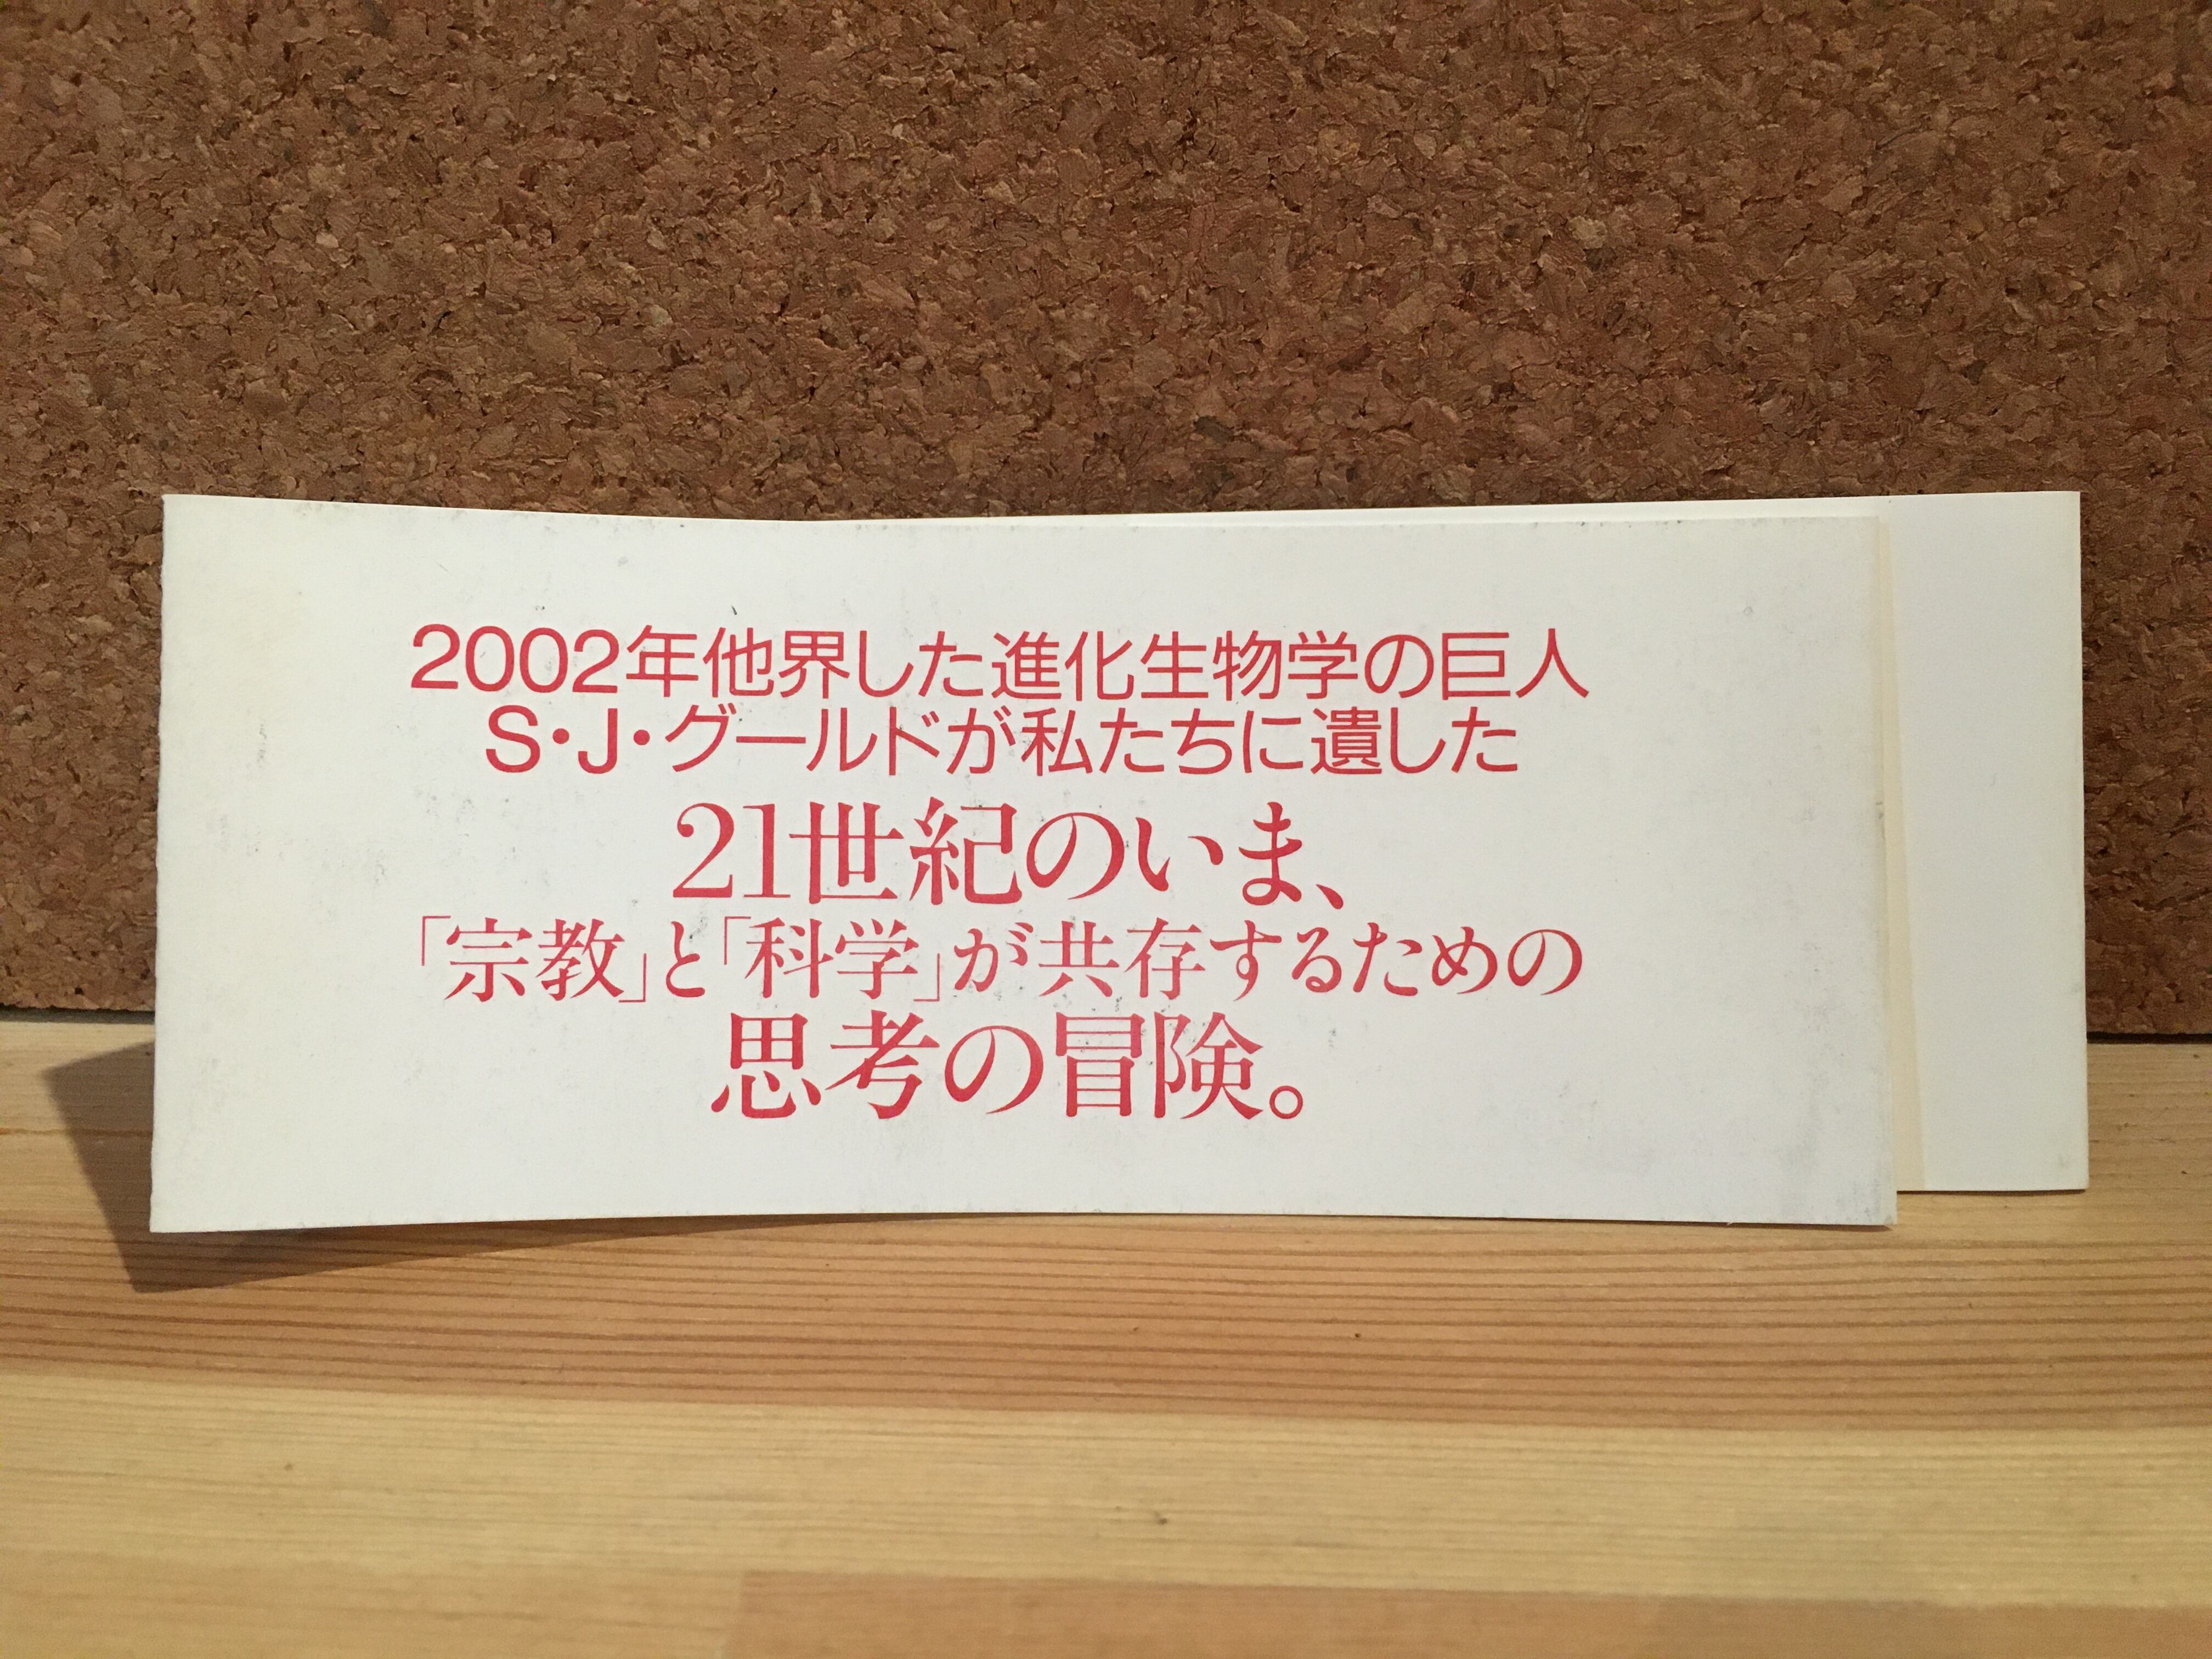 2002年他界した進化生物学の巨人
S・J・グールドが私たちに遺した
21世紀のいま、
「宗教」と「科学」が共存するための
思考の冒険。